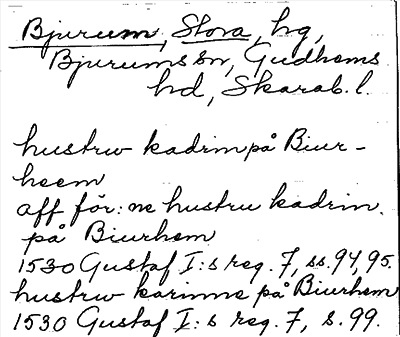 Bjurum, Stora, hg,
Bjurums sn, Gudhems
hd, Skarab. l.
hustrw kadrin på Biur-
heem
aff för:ne hustru kadrin.
på Biurhem
1530 Gustaf I:s reg. 7, ss. 94, 95.
hustrw karinne på Biurhem
1530 Gustaf I:s reg. 7, s. 99.